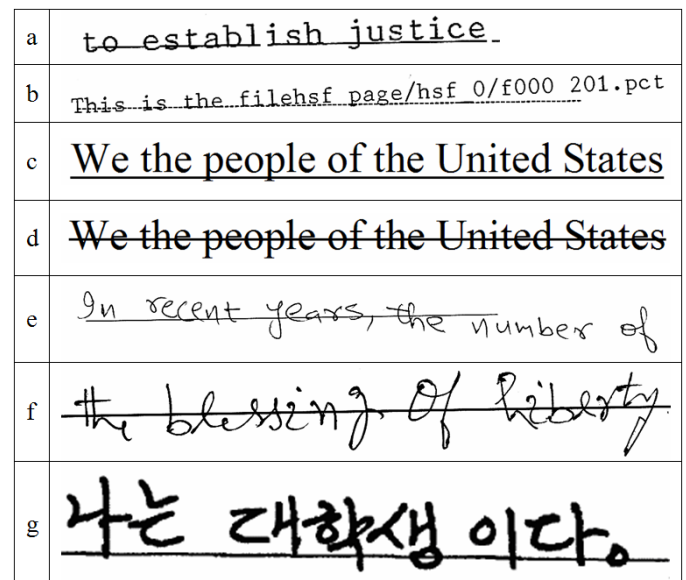 a to establish justice
b This is the filehsf page/hsf 0/f000 201.pct
c We the people of the United States
d We the people of the United States
e In recent years, the number of
f the blessing of liberty
g 나는 대학생 이다.